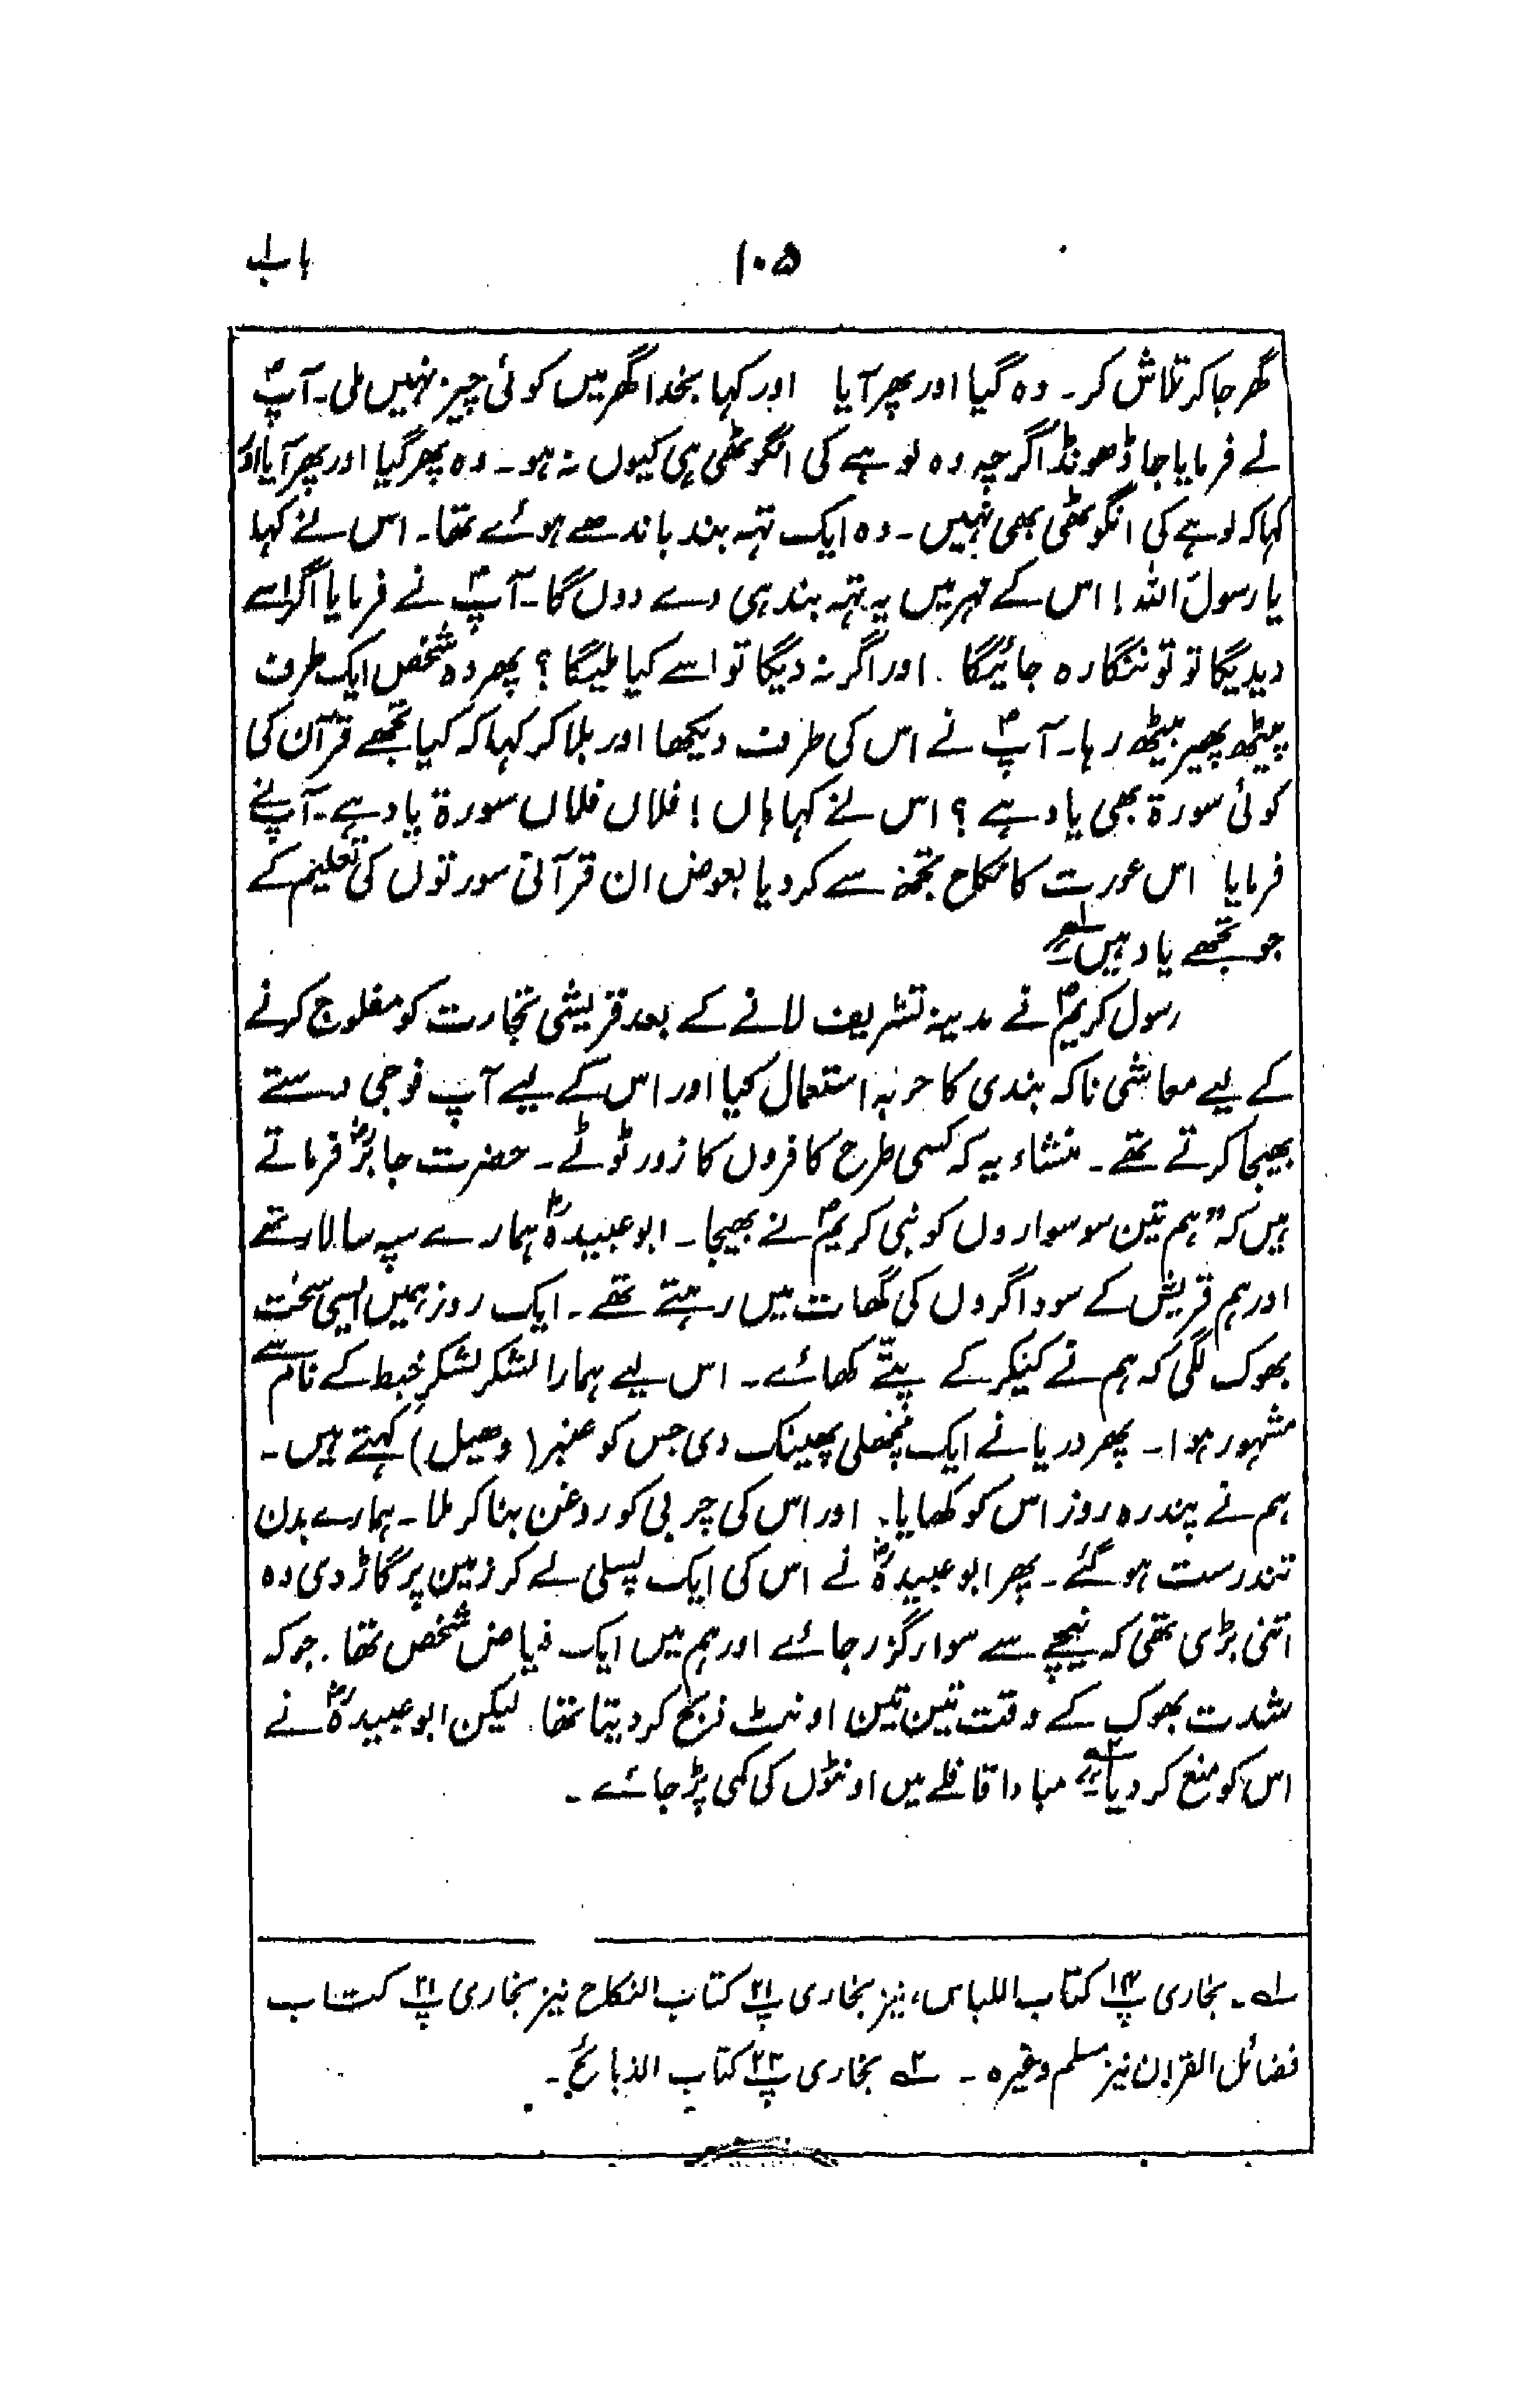 باب ۱۰۵
گھر جا کر تلاش کر۔ وہ گیا اور پھر آیا اور کہا بخدا گھر میں کوئی چیز نہیں ملی۔ آپؐ
نے فرمایا جا ڈھونڈ اگرچہ وہ لوہے کی انگوٹھی ہی کیوں نہ ہو۔ وہ پھر گیا اور پھر آیا اور
کہا کہ لوہے کی انگوٹھی بھی نہیں۔ وہ ایک تہہ بند باندھے ہوئے تھا۔ اس نے کہا
یا رسولؐ اللہ! اس کے مہر میں یہ تہہ بند ہی دے دوں گا۔ آپؐ نے فرمایا اگر اسے
دیدیگا تو تو ننگا رہ جائیگا۔ اور اگر نہ دیگا تو اسے کیا ملیگا؟ پھر وہ شخص ایک طرف
پیٹھ پھیر بیٹھ رہا۔ آپؐ نے اس کی طرف دیکھا اور بلا کر کہا کہ کیا تجھے قرآن کی
کوئی سورۃ بھی یاد ہے؟ اس نے کہا ہاں! فلاں فلاں سورۃ یاد ہے۔ آپنے
فرمایا اس عورت کا نکاح تجھ سے کر دیا بعوض ان قرآنی سورتوں کی تعلیم کے
جو تجھے یاد ہیں۱؎
رسول کریمؐ نے مدینہ تشریف لانے کے بعد قریشی تجارت کو مفلوج کرنے
کے لیے معاشی ناکہ بندی کا حربہ استعمال کیا اور اس کے لیے آپ فوجی دستے
بھیجا کرتے تھے۔ منشاء یہ کہ کسی طرح کافروں کا زور ٹوٹے۔ حضرت جابرؓ فرماتے
ہیں کہ "ہم تین سو سواروں کو نبی کریمؐ نے بھیجا۔ ابوعبیدہؓ ہمارے سپہ سالار تھے
اور ہم قریش کے سوداگروں کی گھات میں رہتے تھے۔ ایک روز ہمیں ایسی سخت
بھوک لگی کہ ہم نے کیکر کے پتّے کھائے۔ اس لیے ہمارا لشکر لشکرِ خبط کے نام سے
مشہور ہوا۔ پھر دریا نے ایک مچھلی پھینک دی جس کو عنبر (وھیل) کہتے ہیں۔
ہم نے پندرہ روز اس کو کھایا۔ اور اس کی چربی کو روغن بنا کر ملا۔ ہمارے بدن
تندرست ہو گئے۔ پھر ابوعبیدہؓ نے اس کی ایک پسلی لے کر زمین پر گاڑ دی وہ
اتنی بڑی تھی کہ نیچے سے سوار گزر جائے اور ہم میں ایک فیاض شخص تھا۔ جو کہ
شدت بھوک کے وقت تین تین اونٹ ذبح کر دیتا تھا۔ لیکن ابوعبیدہؓ نے
اس کو منع کر دیا۲؎ مبادا قافلے میں اونٹوں کی کمی پڑ جائے۔
۱؎۔ بخاری پ کتاب اللباس، نیز بخاری پ۲۱ کتاب النکاح نیز بخاری پ۲۱ کتاب
فضائل القرآن نیز مسلم وغیرہ۔ ۲؎ بخاری پ۲۳ کتاب الذبائح۔